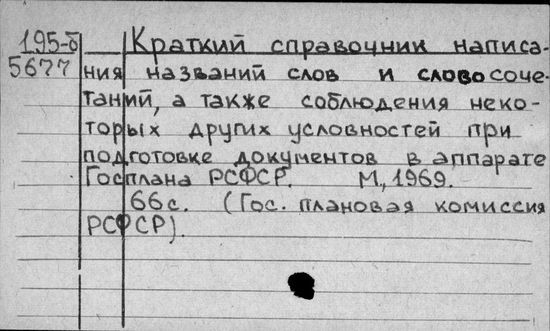 195-б Краткий справочник написа-
5677 ния названий слов и словосоче-
таний, а также соблюдения неко-
торых других условностей при
подготовке документов в аппарате
Госплана РСФСР. М, 1969.
66с. (Гос. плановая комиссия
РСФСР).